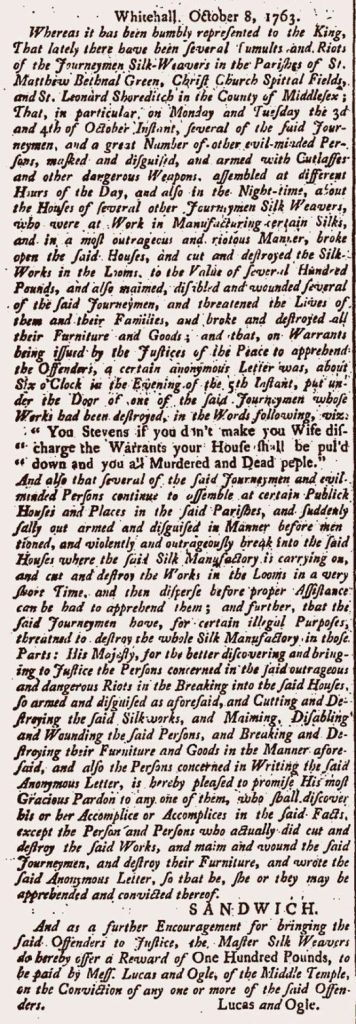 Whitehall. October 8, 1763.
Whereas it has been humbly represented to the King,
That lately there have been several Tumults and Riots
of the Journeymen Silk-Weavers in the Parishes of St.
Matthew Bethnal Green, Christ Church Spittal Fields,
and St. Leonard Shoreditch in the County of Middlesex;
That, in particular, on Monday and Tuesday the 3d
and 4th of October Instant, several of the said Jour-
neymen, and a great Number of other evil-minded Per-
sons, masked and disguised, and armed with Cutlasses
and other dangerous Weapons, assembled at different
Hours of the Day, and also in the Night-time, about
the Houses of several other Journeymen Silk Weavers,
who were at Work in Manufacturing certain Silks,
and in a most outrageous and riotous Manner, broke
open the said Houses, and cut and destroyed the Silk-
Works in the Looms, to the Value of several Hundred
Pounds, and also maimed, disabled and wounded several
of the said Journeymen, and threatened the Lives of
them and their Families, and broke and destroyed all
their Furniture and Goods; and that, on Warrants
being issued by the Justices of the Peace to apprehend
the Offenders, a certain anonymous Letter was, about
Six o'Clock in the Evening of the 5th Instant, put un-
der the Door of one of the said Journeymen whose
Works had been destroyed, in the Words following, viz.
" You Stevens if you d'n't make you Wife dis-
" charge the Warrants your House shall be pul'd
" down and you all Murdered and Dead peple."
And also that several of the said Journeymen and evil-
minded Persons continue to assemble at certain Publick
Houses and Places in the said Parishes, and suddenly
sally out armed and disguised in Manner before men
tioned, and violently and outrageously break into the said
Houses where the said Silk Manufactory is carrying on,
and cut and destroy the Works in the Looms in a very
short Time, and then disperse before proper Assistance
can be had to apprehend them; and further, that the
said Journeymen have, for certain illegal Purposes,
threatned to destroy the whole Silk Manufactory in those
Parts: His Majesty, for the better discovering and bring-
ing to Justice the Persons concerned in the said outrageous
and dangerous Riots in the Breaking into the said Houses,
so armed and disguised as aforesaid, and Cutting and De-
stroying the said Silkworks, and Maiming, Disabling
and Wounding the said Persons, and Breaking and De-
stroying their Furniture and Goods in the Manner afore-
said, and also the Persons concerned in Writing the said
Anonymous Letter, is hereby pleased to promise His most
Gracious Pardon to any one of them, who shall discover
his or her Accomplice or Accomplices in the said Facts,
except the Person and Persons who actually did cut and
destroy the said Works, and maim and wound the said
Journeymen, and destroy their Furniture, and wrote the
said Anonymous Letter, so that he, she or they may be
apprehended and convicted thereof.
SANDWICH.
And as a further Encouragement for bringing the
said Offenders to Justice, the Master Silk Weavers
do hereby offer a Reward of One Hundred Pounds, to
be paid by Mess. Lucas and Ogle, of the Middle Temple,
on the Conviction of any one or more of the said Offen-
ders. Lucas and Ogle.